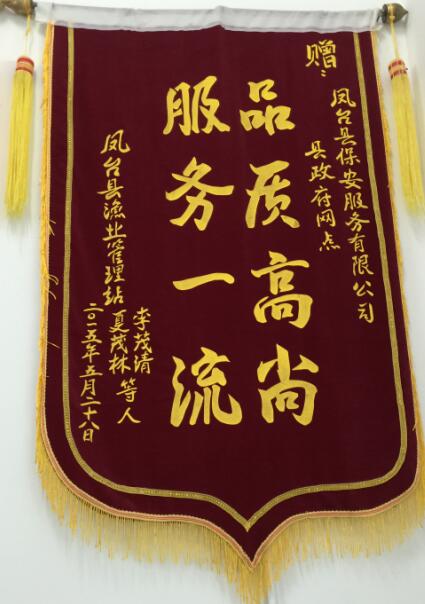 赠:
凤台县保安服务有限公司
县政府网点
品质高尚
服务一流
凤台县渔业管理站
李茂清
夏茂林
等人
二〇一五年五月二十八日